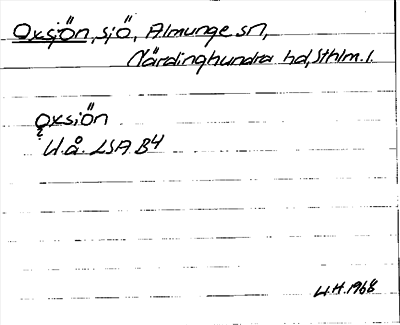 Oxsjön, sjö, Almunge sn,
Närdinghundra hd, Sthlm. l.
Oxsiön
U.å. LSA B4
U.H. 1968